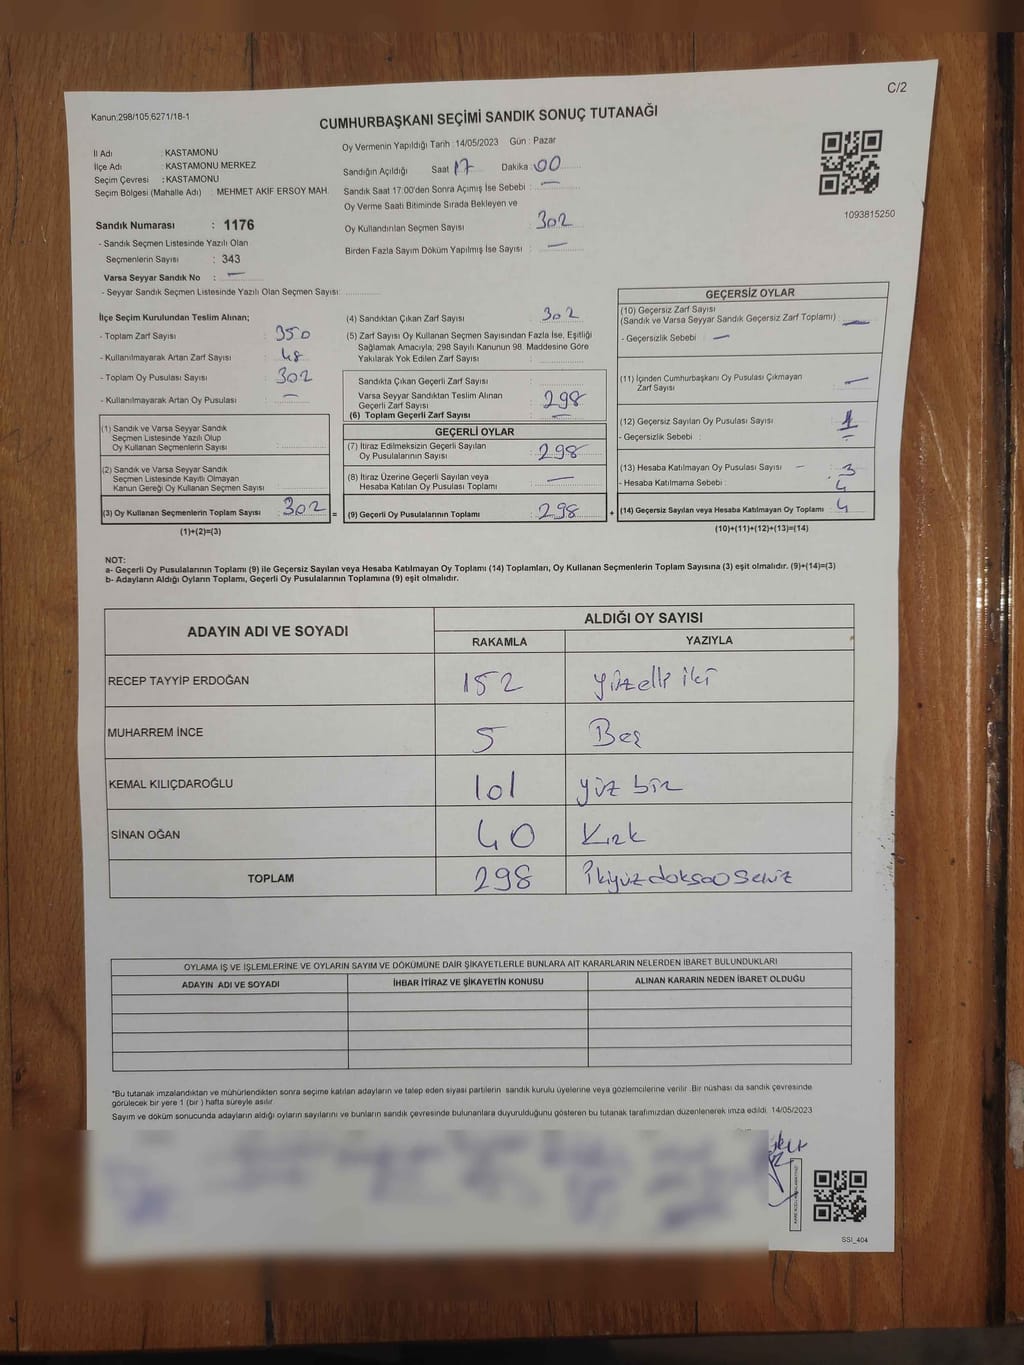 C/2
Kanun:298/105,6271/18-1
CUMHURBAŞKANI SEÇİMİ SANDIK SONUÇ TUTANAĞI
İl Adı : KASTAMONU
İlçe Adı : KASTAMONU MERKEZ
Seçim Çevresi : KASTAMONU
Seçim Bölgesi (Mahalle Adı) : MEHMET AKİF ERSOY MAH.
Sandık Numarası : 1176
- Sandık Seçmen Listesinde Yazılı Olan
Seçmenlerin Sayısı : 343
Varsa Seyyar Sandık No : —
- Seyyar Sandık Seçmen Listesinde Yazılı Olan Seçmen Sayısı:
Oy Vermenin Yapıldığı Tarih :14/05/2023 Gün : Pazar
Sandığın Açıldığı Saat 17 Dakika : 00
Sandık Saat 17:00'den Sonra Açımış İse Sebebi : —
Oy Verme Saati Bitiminde Sırada Bekleyen ve
Oy Kullandırılan Seçmen Sayısı : 302
Birden Fazla Sayım Döküm Yapılmış İse Sayısı : —
1093815250
İlçe Seçim Kurulundan Teslim Alınan;
- Toplam Zarf Sayısı : 350
- Kullanılmayarak Artan Zarf Sayısı : 48
- Toplam Oy Pusulası Sayısı : 302
- Kullanılmayarak Artan Oy Pusulası : —
(1) Sandık ve Varsa Seyyar Sandık
Seçmen Listesinde Yazılı Olup
Oy Kullanan Seçmenlerin Sayısı :
(2) Sandık ve Varsa Seyyar Sandık
Seçmen Listesinde Kayıtlı Olmayan
Kanun Gereği Oy Kullanan Seçmen Sayısı :
(3) Oy Kullanan Seçmenlerin Toplam Sayısı : 302
(1)+(2)=(3)
(4) Sandıktan Çıkan Zarf Sayısı : 302
(5) Zarf Sayısı Oy Kullanan Seçmen Sayısından Fazla İse, Eşitliği
Sağlamak Amacıyla; 298 Sayılı Kanunun 98. Maddesine Göre
Yakılarak Yok Edilen Zarf Sayısı :
Sandıkta Çıkan Geçerli Zarf Sayısı :
Varsa Seyyar Sandıktan Teslim Alınan
Geçerli Zarf Sayısı : 298
(6) Toplam Geçerli Zarf Sayısı : —
GEÇERLİ OYLAR
(7) İtiraz Edilmeksizin Geçerli Sayılan
Oy Pusulalarının Sayısı : 298
(8) İtiraz Üzerine Geçerli Sayılan veya
Hesaba Katılan Oy Pusulası Toplamı : —
= (9) Geçerli Oy Pusulalarının Toplamı : 298 +
GEÇERSİZ OYLAR
(10) Geçersiz Zarf Sayısı
(Sandık ve Varsa Seyyar Sandık Geçersiz Zarf Toplamı) : —
- Geçersizlik Sebebi : —
(11) İçinden Cumhurbaşkanı Oy Pusulası Çıkmayan
Zarf Sayısı : —
(12) Geçersiz Sayılan Oy Pusulası Sayısı : 1
- Geçersizlik Sebebi : —
(13) Hesaba Katılmayan Oy Pusulası Sayısı — 3
- Hesaba Katılmama Sebebi : 4
(14) Geçersiz Sayılan veya Hesaba Katılmayan Oy Toplamı : 4
(10)+(11)+(12)+(13)=(14)
NOT:
a- Geçerli Oy Pusulalarının Toplamı (9) ile Geçersiz Sayılan veya Hesaba Katılmayan Oy Toplamı (14) Toplamları, Oy Kullanan Seçmenlerin Toplam Sayısına (3) eşit olmalıdır. (9)+(14)=(3)
b- Adayların Aldığı Oyların Toplamı, Geçerli Oy Pusulalarının Toplamına (9) eşit olmalıdır.
ADAYIN ADI VE SOYADI ALDIĞI OY SAYISI
RAKAMLA YAZIYLA
RECEP TAYYİP ERDOĞAN 152 yüzelli iki
MUHARREM İNCE 5 Beş
KEMAL KILIÇDAROĞLU 101 yüz bir
SİNAN OĞAN 40 Kırk
TOPLAM 298 İkiyüz doksan sekiz
OYLAMA İŞ VE İŞLEMLERİNE VE OYLARIN SAYIM VE DÖKÜMÜNE DAİR ŞİKAYETLERLE BUNLARA AİT KARARLARIN NELERDEN İBARET BULUNDUKLARI
ADAYIN ADI VE SOYADI İHBAR İTİRAZ VE ŞİKAYETİN KONUSU ALINAN KARARIN NEDEN İBARET OLDUĞU
*Bu tutanak imzalandıktan ve mühürlendikten sonra seçime katılan adayların ve talep eden siyasi partilerin sandık kurulu üyelerine veya gözlemcilerine verilir. Bir nüshası da sandık çevresinde
görülecek bir yere 1 (bir ) hafta süreyle asılır.
Sayım ve döküm sonucunda adayların aldığı oyların sayılarını ve bunların sandık çevresinde bulunanlara duyurulduğunu gösteren bu tutanak tarafımızdan düzenlenerek imza edildi. 14/05/2023
SSİ_404